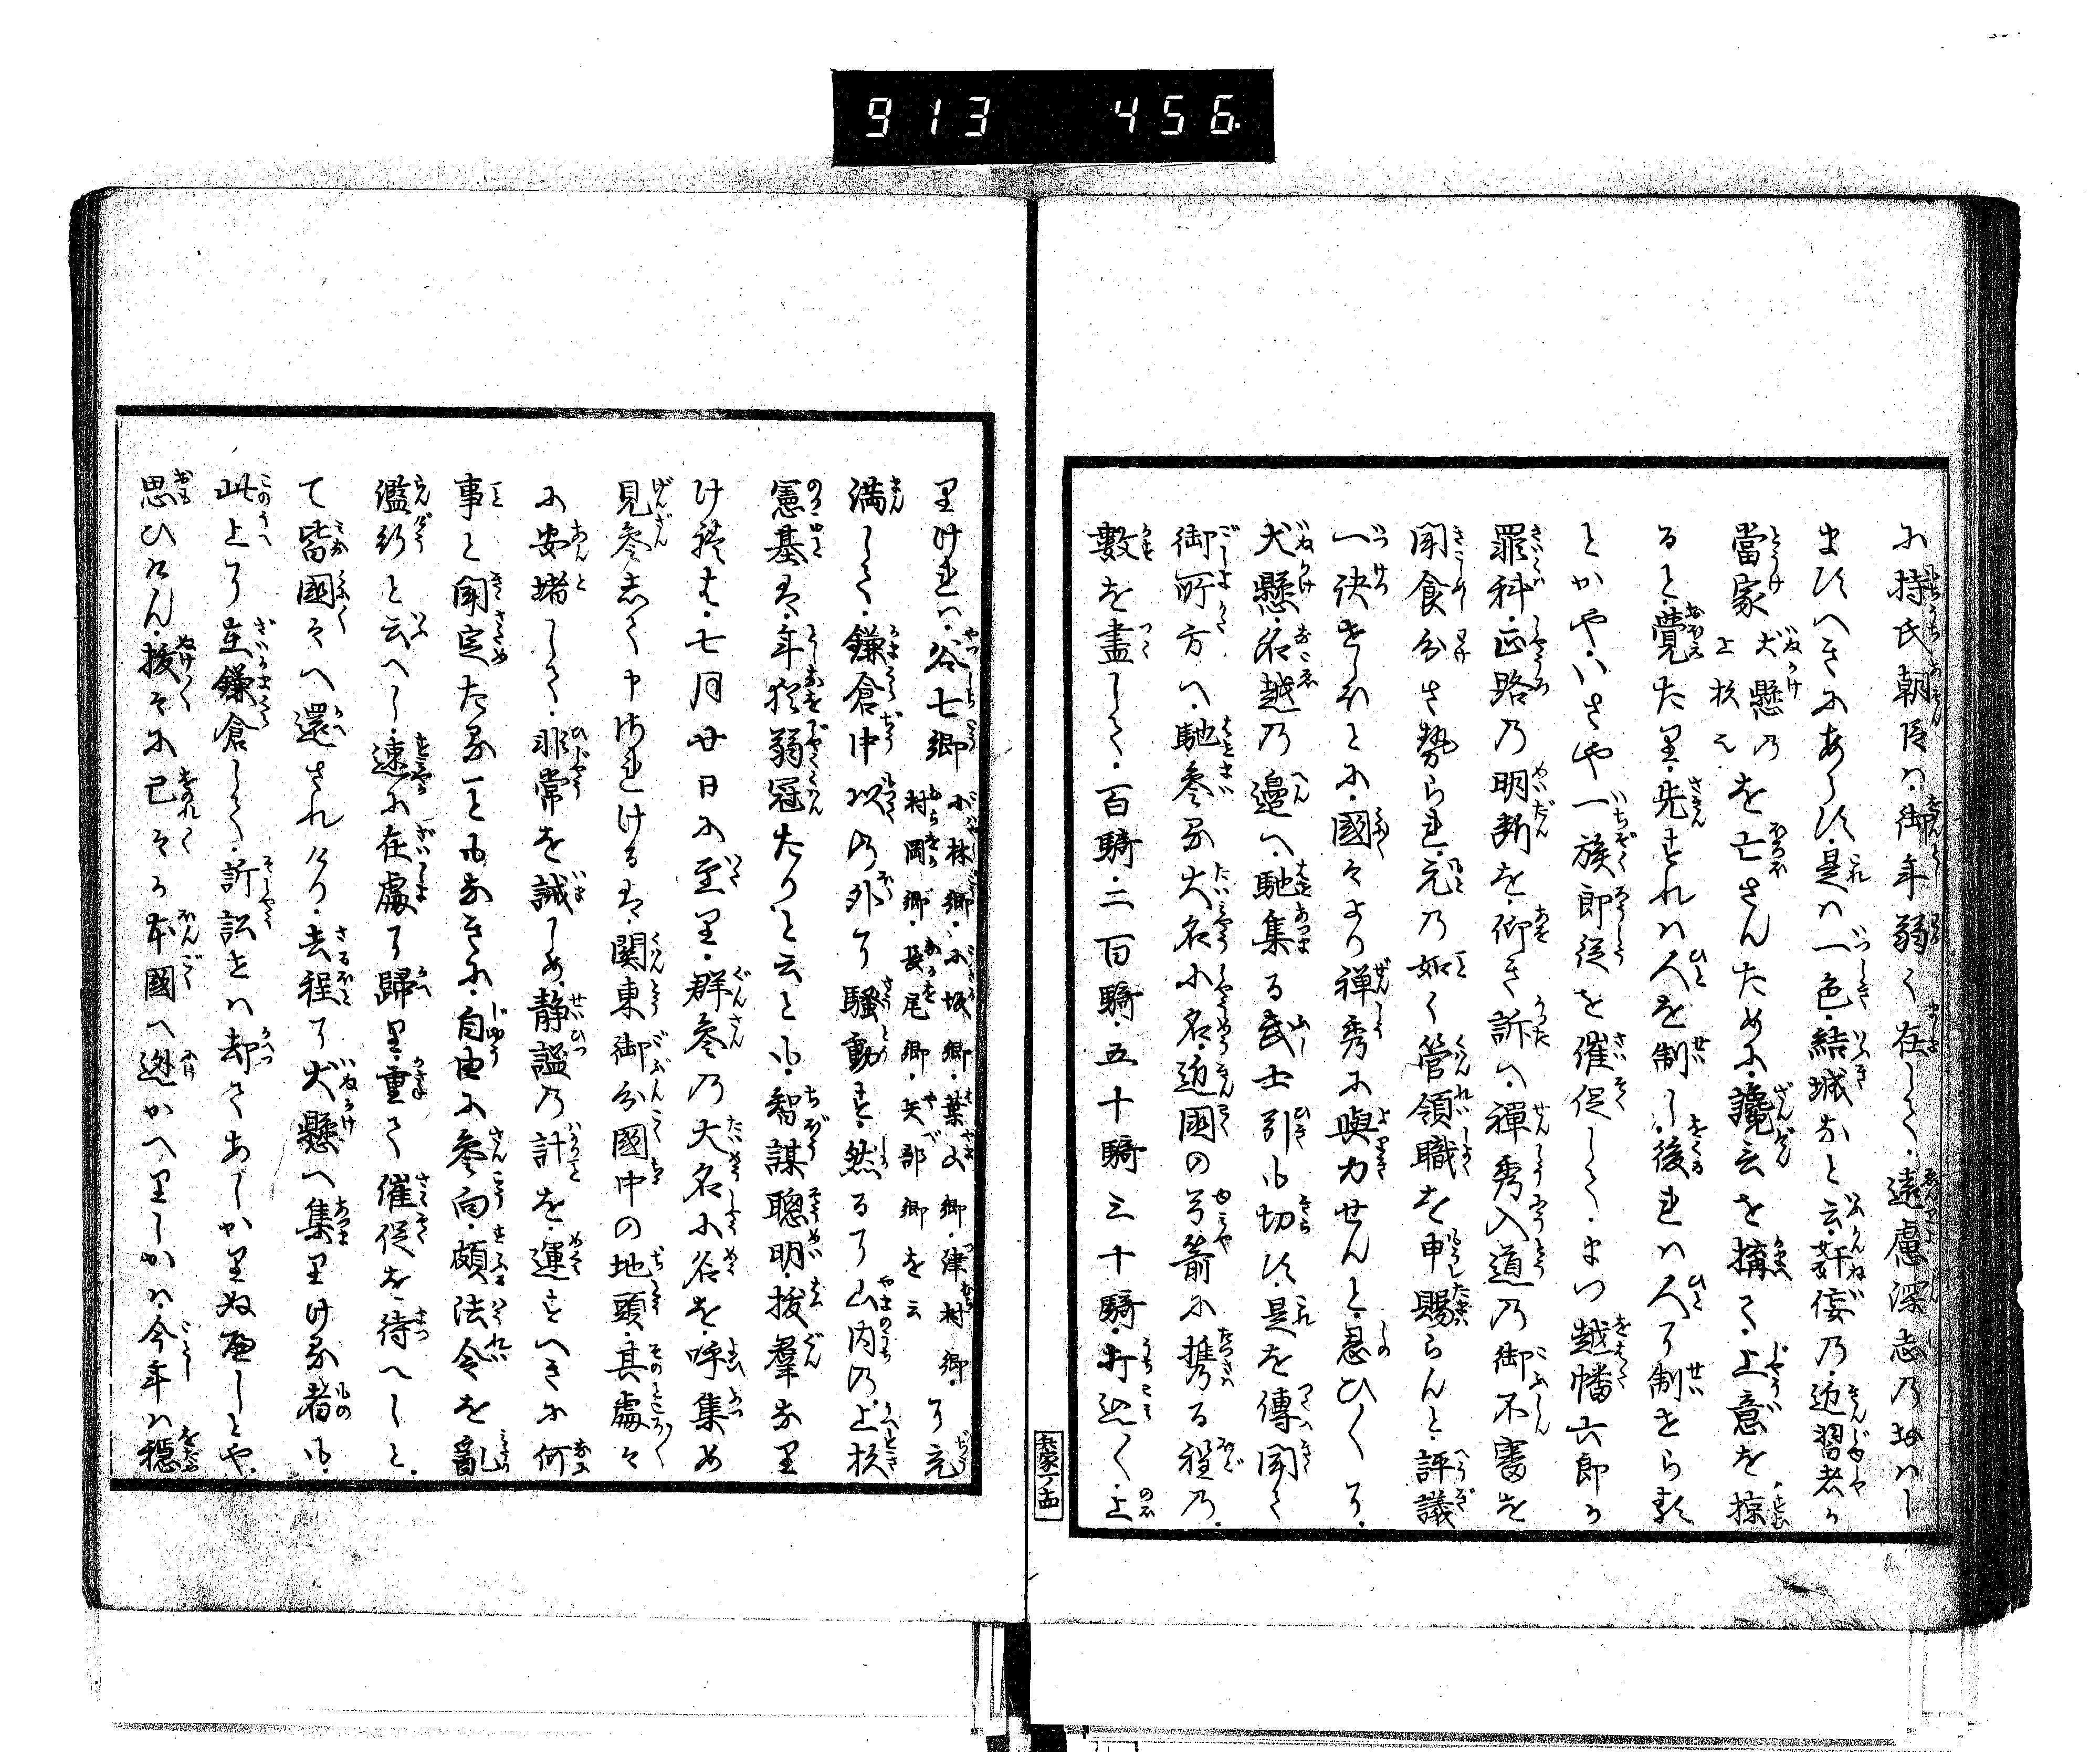 913 456.
に持氏朝臣ハ御年弱く在して・遠慮深志のおハし
ますへきにあらす・是ハ一色・結城なと云・奸佞の・近習者か
當家 犬懸の上杉を を亡さんために・讒言を搆て・上意を掠
ると・覚たり・先すれハ人を制し・後れハ人に制せらる
とかや・いさや一族郎従を催促して・まつ越幡六郎か
罪科・正路の明断を・仰き訴へ・禅秀入道の御不審を
聞食分させられ・元の如く管領職を申賜らんと・評議
一決せしほとに・國々より禅秀に與力せんと・忍ひ〳〵に・
犬懸・名越の邊へ・馳集る武士引も切す・是を傳聞て
御所方へ・馳参る大名小名・近國の弓箭に携る程の・
數を盡して・百騎・二百騎・五十騎三十騎・打込〳〵・上
兵家丁五
りけれハ・谷七郷 小林郷・小坂郷・葉山郷・津村郷・村岡郷・長尾郷・矢部郷を云 に充
満して・鎌倉中以の外に騒動す・然るに山内の・上杉
憲基は・年猶弱冠たりと云とも・智謀聰明・抜羣なり
け礼は・七月廿日に至り・群参の大名小名を・呼集め
見参して申されけるは・関東御分國中の地頭・其處々
に安堵して・非常を誡しめ・静謐の計を・運すへきに何
事と聞定たる事もなきに・自由に参向・頗法令を亂
濫行と云へし・速に在處に歸り・重て催促を待へしと・
て皆國々へ還されけり・去程に犬懸へ集りける者も・
此上に在鎌倉して・訴訟せハ却てあしかりぬへしとや・
思ひけん・抜々に己々か本國へ逃かへりしかハ・今年ハ穏